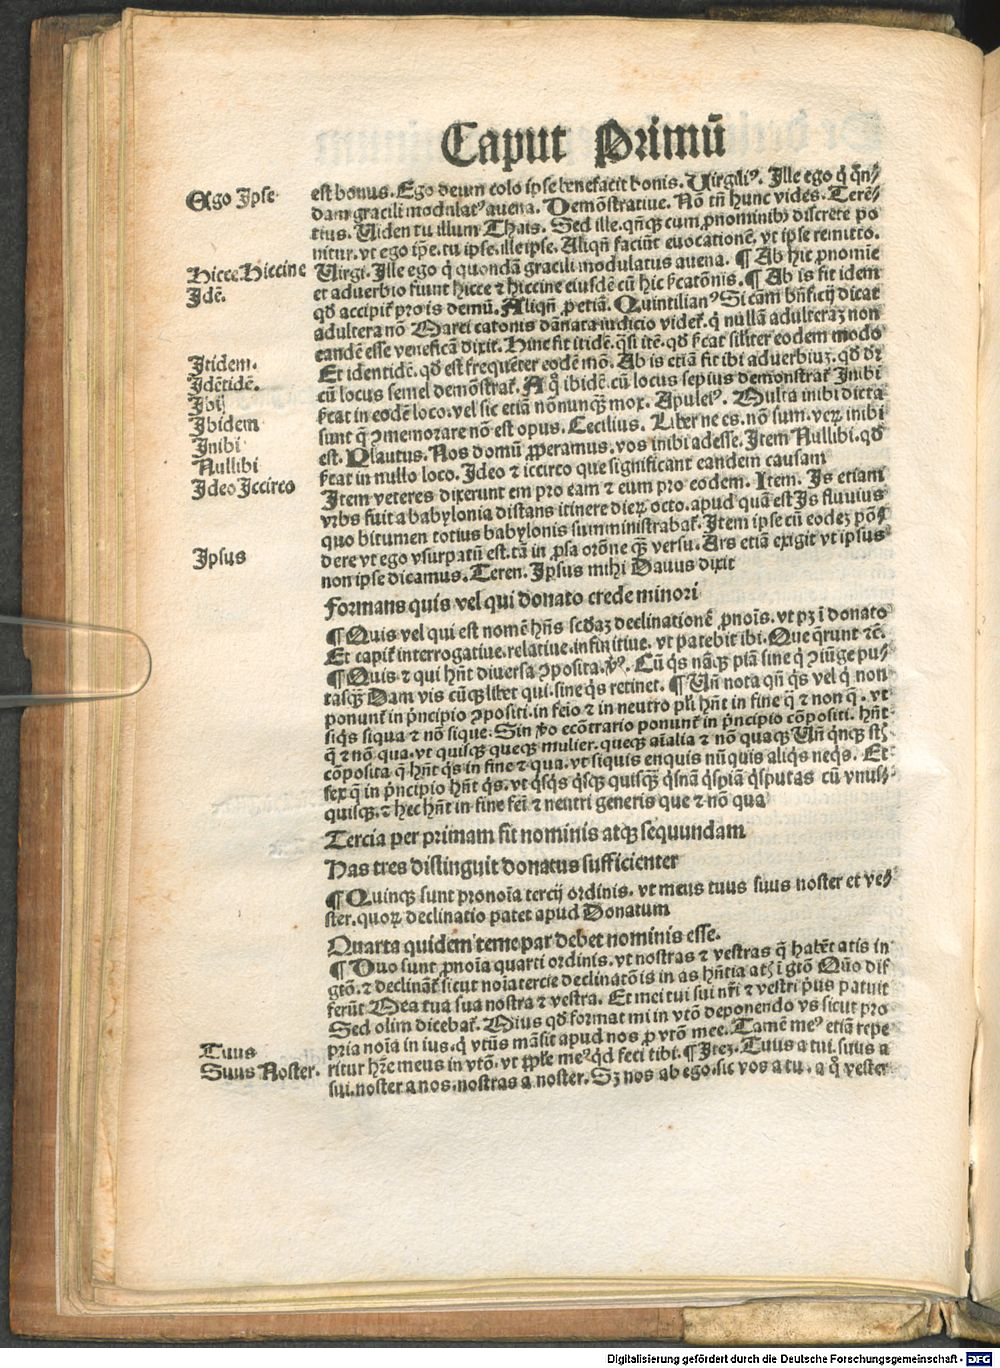 Caput Primū
Ego Ipse
est bonus. Ego deum colo ipse benefacit bonis. Virgiliꝰ. Ille ego q̇ q̄n⸗
dam gracili modulatꝰ auena. Demōstratiue. Nō tn̄ hunc vides. Terē⸗
tius. Viden tu illum Thais. Sed ille. qn̄qꝫ cum ꝓnominibꝫ discrete po
nitur. vt ego ip̄e. tu ipse. ille ipse. Aliqn̄ faciūt euocationē. vt ipse remitto.
Hicce. Hiccine
Virgi. Ille ego q̇ quondā gracili modulatus auena. ¶ Ab hic ꝓnomīe
Idē.
et aduerbio fiunt hicce ⁊ hiccine eiusdē cū hic ſcatōnis. ¶ Ab is fit idem
qd̄ accipit᷑ pro is demū. Aliqn̄ ꝑ etiā. Quintilianꝰ Si eam bn̄ficij dicat
adultera nō Marci catonis dānata iudicio videt᷑. q̇ nullā adulteraꝫ non
eandē esse veneficā dixit. Hinc fit itidē. q̄si itē. qd̄ ſcat siliter eodem modo
Itidem.
Et identidē. qd̄ est frequēter eodē mō. Ab is etiā fit ibi aduerbiuꝫ. qd̄ dꝛ
Idētidē.
cū locus semel demōstrat᷑. A q̊ ibidē. cū locus sepius demonstrat᷑ Inibi
Ibi
ſcat in eodē loco. vel sic etiā nōnunqꝫ mox. Apuleiꝰ. Multa inibi dicta
Ibidem
sunt q̄ ꝯmemorare nō est opus. Cecilius. Liber ne es. nō sum. veꝝ inibi
Inibi
est. Plautus. Nos domū ꝓperamus. vos inibi adesse. Item Nullibi. qd̄
Nullibi
ſcat in nullo loco. Ideo ⁊ iccirco que significant eandem causam
Ideo Iccirco
Item veteres dixerunt em pro eam ⁊ eum pro eodem. Item. Is etiam
vrbs fuit a babylonia distans itinere dieꝝ octo. apud quā est Is fluuius
quo bitumen totius babylonis sumministrabat᷑. Item ipse cū eodeꝫ pōt
Ipsus
dere vt ego vsurpatū est. tā in ꝓsa orōne qꝫ versu. Ars etiā exigit vt ipsus
non ipse dicamus. Teren. Ipsus mihi Dauus dixit
Formans quis vel qui donato crede minori
¶ Quis vel qui est nomē hn̄s scd̄aꝫ declinationē ꝓnoīs. vt pꝫ ī donato
Et capit᷑ interrogatiue. relatiue. infinitiue. vt patebit ibi. Que q̄runt ⁊c̄.
¶ Quis ⁊ qui hn̄t diuersa ꝯposita. Cū q̇s nāqꝫ piā sine q̇ ꝯiūge pu⸗
tasqꝫ Dam vis cūqꝫ libet qui. sine q̇s retinet. ¶ Vn̄ nota qn̄ q̇s vel q̇ non
ponunt᷑ in p̄ncipio ꝯpositi. in feīo ⁊ in neutro pl̄i hn̄t in fine q̄ ⁊ non q̄. vt
siq̇s siqua ⁊ nō sique. Sin ecōtrario ponunt᷑ in p̄ncipio cōpositi. hn̄t
q̄ ⁊ nō qua. vt quisqꝫ queqꝫ mulier. queqꝫ aīalia ⁊ nō quaqꝫ Vn̄
cōposita q̄ hn̄t q̇s in fine ⁊ qua. vt siquis enquis nūquis aliq̇s neq̇s. Et
sex q̄ in p̄ncipio hn̄t q̇s. vt q̇sq̇s q̇sqꝫ quisqꝫ q̇snā q̇spiā q̇sputas cū vnus⸗
quisqꝫ. ⁊ hec hn̄t in fine feī ⁊ neutri generis que ⁊ nō qua
Tercia per primam fit nominis atqꝫ sequundam
Has tres distinguit donatus sufficienter
¶ Quinqꝫ sunt pronoīa tercij ordinis. vt meus tuus suus noster et ve⸗
ster. quoꝝ declinatio patet apud Donatum
Quarta quidem temopar debet nominis esse.
¶ Duo sunt ꝓnoīa quarti ordinis. vt nostras ⁊ vestras q̄ habēt atis in
gtō. ⁊ declināt᷑ sicut noīa tercie declinatōis in as hn̄tia atꝭ ī gtō Quō dif
ferūt Mea tua sua nostra ⁊ vestra. Et mei tui sui nr̄i ⁊ vestri p̄us patuit
Sed olim dicebat᷑. Mius qd̄ format mi in vtō deponendo vs sicut pro
pria noīa in ius. q̇ vtūs māsit apud nos ꝓ vtō mee. Tamē meꝰ etiā repe
Tuus
ritur hr̄e meus in vtō. vt meꝰ qd feci tibi. ¶ Iteꝫ. Tuus a tui. suus a
Suus Noster.
sui. noster a nos. nostras a noster. Sꝫ nos ab ego. sic vos a tu. a q̊ vester
Digitalisierung gefördert durch die Deutsche Forschungsgemeinschaft - DFG